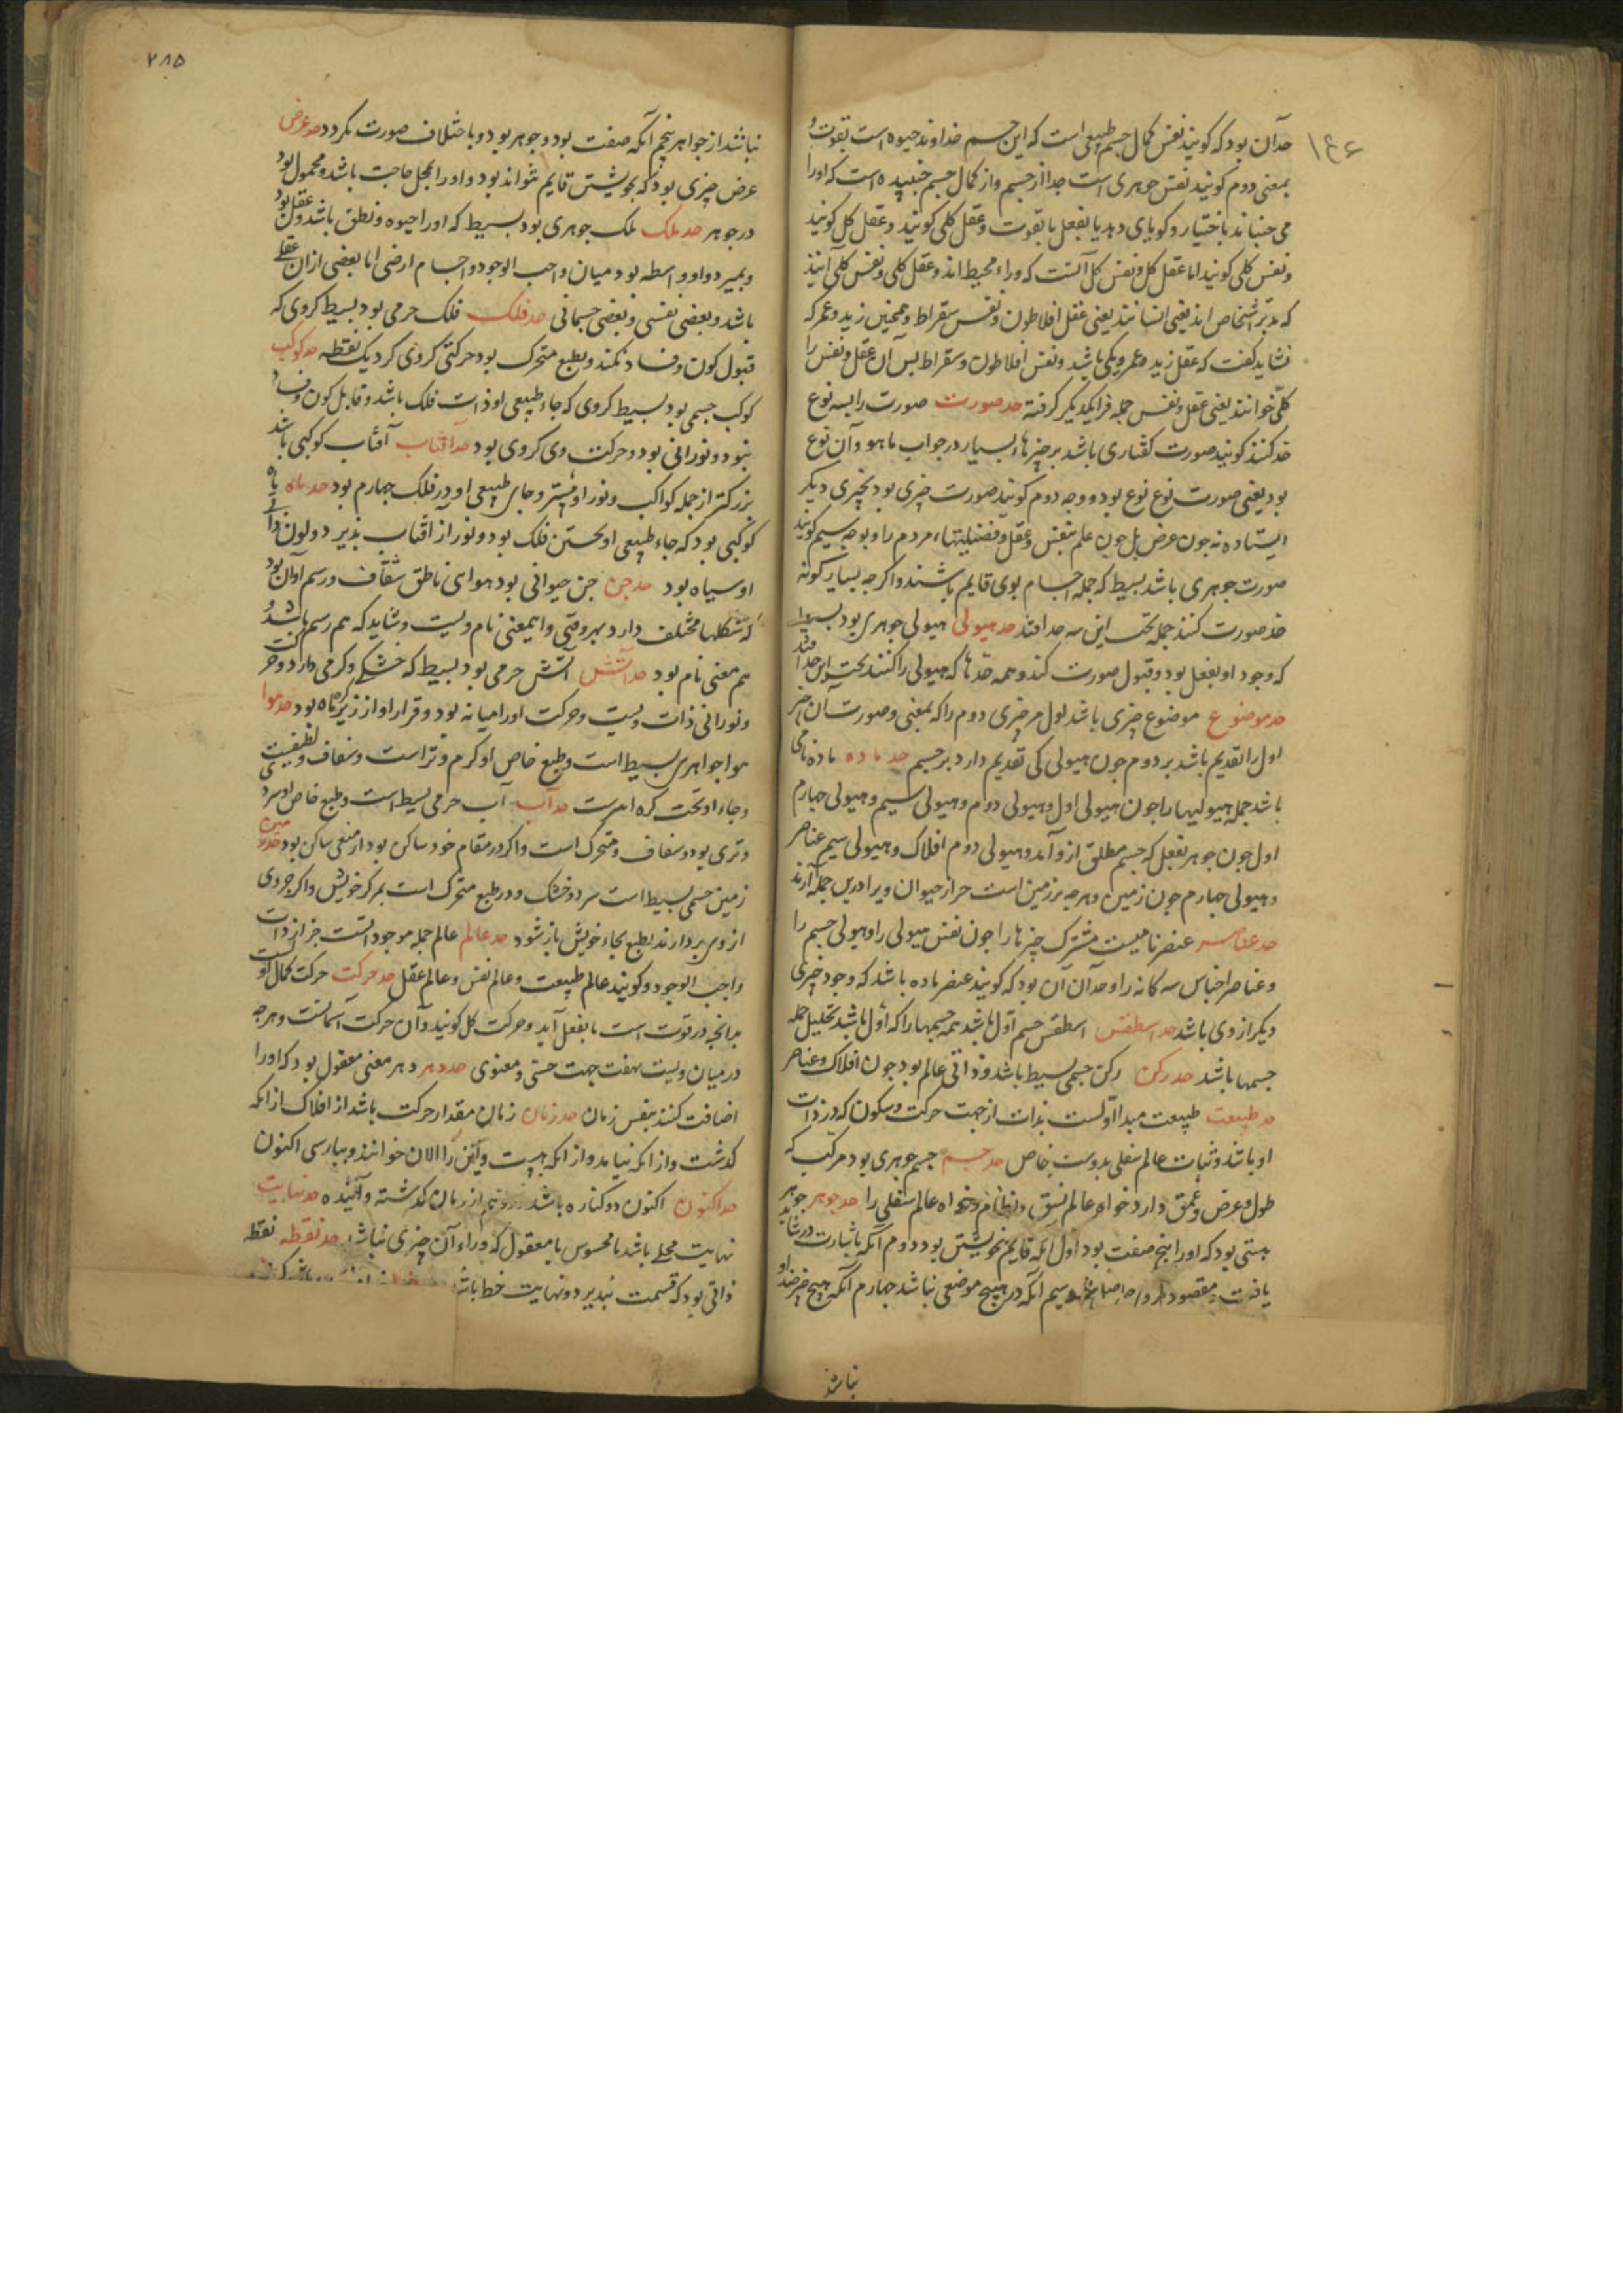 حد آن بود که کویند نفس کمال جسم طبیعی است که این جسم خداوند حیوه است بقوت و
بمعنی دوم کویند نفس جوهری است جدا از جسم و از کمال جسم جنبیده است که او را
می جنباند باختیار و کویای دهد یا بفعل یا بقوت و عقل کلی کویند و عقل کل کویند
و نفس کلی کویند اما عقل کل و نفس کل آنست که وراء محیط اند و عقل کلی و نفس کلی آنند
که مدبر اشخاص اند یعنی انسانند یعنی عقل افلاطون و نفس سقراط و همچنین زید و عمر که
نشاید کفت که عقل زید و عمرو یکی باشد و نفس افلاطون و سقراط پس آن عقل و نفس را
کلی خوانند یعنی عقل و نفس جمله فرا یکدیکر کرفته حد صورت صورت را بسه نوع
حد کنند کویند صورت کفتاری باشد بر چیزهاء بسیار در جواب ماهو و آن نوع
بود یعنی صورت نوع نوع بود و وجه دوم کویند صورت چیزی بود بچیزی دیکر
ایستاده نه جون عرض بل جون علم بنفس و عقل و فضیلتهاء مردم را و بوجه سیم کویند
صورت جوهری باشد بسیط که جمله اجسام بوی قایم باشند و اکر جه بسیار کونه
حد صورت کنند جمله تحت این سه حد افتد حد هیولی هیولی جوهری بود بسیط
که وجود او بفعل بود و قبول صورت کند و همه حدها که هیولی را کنند تحت این حد افتد
حد موضوع موضوع چیزی باشد اول مر چیزی دوم را که بمعنی و صورت آن چیز
اول را تقدیم باشد بر دوم جون هیولی کی تقدیم دارد بر جسم حد ماده ماده نامی
باشد جمله هیولیها را جون هیولی اول و هیولی دوم و هیولی سیم و هیولی جهارم
اول جون جوهر بفعل که جسم مطلق ازو آمد و هیولی دوم افلاک و هیولی سیم عناصر
و هیولی جهارم جون زمین و هرجه بر زمین است جز از حیوان ویرا درین جمله آرند
حد عناصر عنصر نامیست مشترک چیزها را جون نفس هیولی را و هیولی جسم را
و عناصر اجناس سه کانه را و حد آن آن بود که کویند عنصر ماده باشد که وجود چیزی
دیکر از وی باشد حد اسطقس اسطقس جسم اول باشد همه جسمها را که اول باشد تحلیل جمله
جسمها باشد حد رکن رکن جسمی بسیط باشد و ذاتی عالم بود جون افلاک و عناصر
حد طبیعت طبیعت مبدا اولست بذات از جهت حرکت و سکون که در ذات
او باشد و ثبات عالم سفلی بدوست خاص حد جسم جسم جوهری بود مرکب که
طول و عرض و عمق دارد خواه عالم نسق و نظام و خواه عالم سفلی را حد جوهر جوهر
هستی بود که او را پنج صفت بود اول انکه قایم بخویشتن بود دوم آنکه باشارت در شاید
یافت مقصود سیم آنکه در هیچ موضعی نباشد جهارم آنکه هیچ چیز ضد او
نباشد
۲۸۵
نباشد از جواهر پنجم آنکه صفت بود و جوهر بود و باختلاف صورت نکردد حد عرض
عرض چیزی بود که بخویشتن قایم نتواند بود و او را بمحل حاجت باشد و محمول بود
در جوهر حد ملک ملک جوهری بود بسیط که او را حیوه و نطق باشد و عقل بود
و نمیرد و او واسطه بود میان واجب الوجود و اجسام ارضی اما بعضی از ان عقلی
باشد و بعضی نفسی و بعضی جسمانی حد فلک فلک جرمی بود بسیط کروی که
قبول کون و فساد نکند و بطبع متحرک بود حرکتی کروی کرد یک نقطه حد کوکب
کوکب جسمی بود بسیط کروی که جاء طبیعی او ذات فلک باشد و قابل کون و فساد
نبود و نورانی بود و حرکت وی کروی بود حد آفتاب آفتاب کوکبی باشد
بزرکتر از جمله کواکب و نور او بیشتر و جای طبیعی او در فلک جهارم بود حد ماه ماه
کوکبی بود که جاء طبیعی او نخستین فلک بود و نور از آفتاب پذیرد و لون ذات
او سیاه بود حد جن جن حیوانی بود هوای ناطق شفاف و رسم او آن بود
که شکلها مختلف دارد بهر وقتی و این معنی نام ویست و شاید که هم رسم باشد و
هم معنی نام بود حد آتش آتش جرمی بود بسیط که خشکی و کرمی دارد و حرکت
و نورانی ذات ویست و حرکت او را میانه بود و قرار او از زیر کره ماه بود حد هوا
هوا جواهری بسیط است و بطبع خاص او کرم و تر است و شفاف و لطیفیست
و جاء او تحت کره اثیرست حد آب آب جرمی بسیط است و طبع خاص او سرد
و تری بود و شفاف و متحرک است و اکر در مقام خود ساکن بود از منعی ساکن بود حد زمین
زمین جسمی بسیط است سرد و خشک و در طبع متحرک است بمرکز خویش و اکر جزوی
از وی بردارند بطبع بجاء خویش باز شود حد عالم عالم جمله موجود است جز از ذات
واجب الوجود و کویند عالم طبیعت و عالم نفس و عالم عقل حد حرکت حرکت کمال اولست
بدانجه در قوت است تا بفعل آید و حرکت کل کویند و آن حرکت آسمانست و هرجه
در میان ویست بهفت جهت حسی و معنوی حد دهر دهر معنی معقول بود که او را
اضافت کنند بنفس زمان حد زمان زمان مقدار حرکت باشد از افلاک از انکه
کذشت و از انکه نیامد و از انکه هست و این را الان خوانند و بپارسی اکنون
حد اکنون اکنون دو کناره باشد از زمان کذشته و آینده حد نهایت
نهایت محلی باشد یا محسوس یا معقول که وراء آن چیزی نباشد حد نقطه نقطه
ذاتی بود که قسمت نپذیرد و نهایت خط باشد